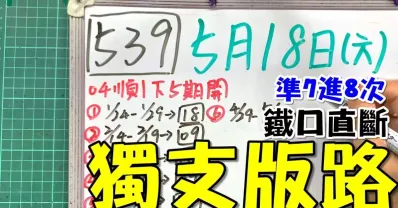 539 5月18日(六)
04順1下5期開 準7進8次
① 1/24-1/29→18 ⑥ 4/24
鐵口直斷
② 2/24-2/29→09
獨支版路